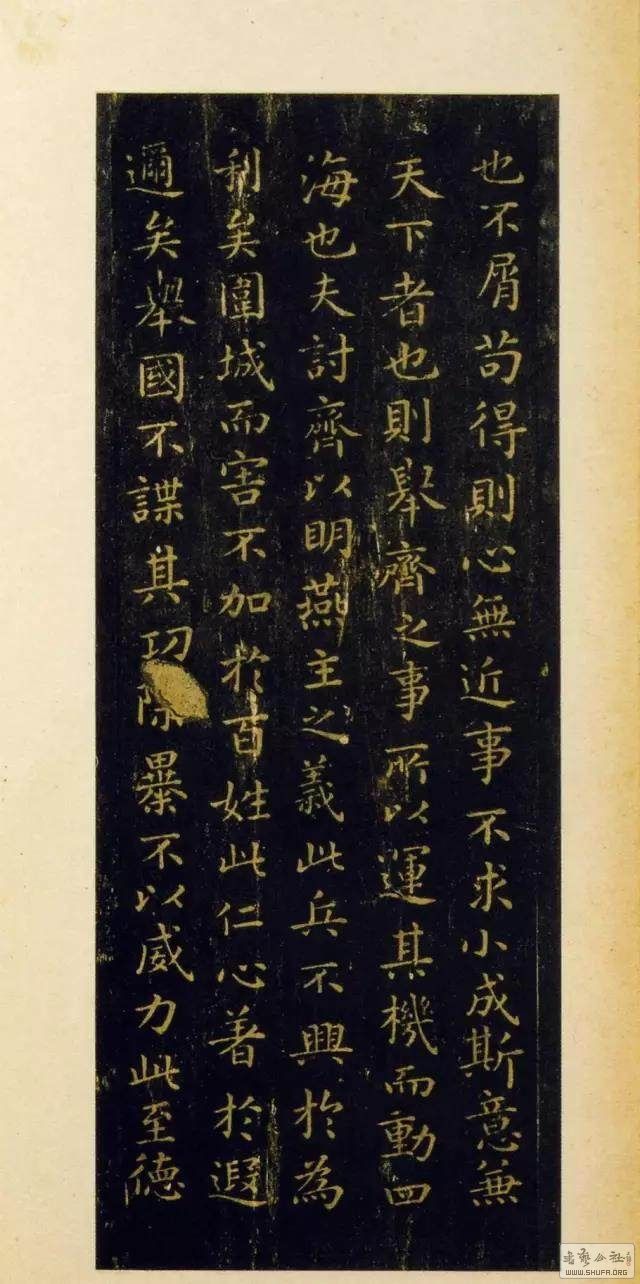 也不屑苟得則心無近事不求小成斯意無
天下者也則舉齊之事所以運其機而動四
海也夫討齊以明燕主之義此兵不興於為
利矣圍城而害不加於百姓此仁心著於遐
邇矣舉國不謀其功除暴不以威力此至德
書藝公社
WWW.SHUFA.ORG